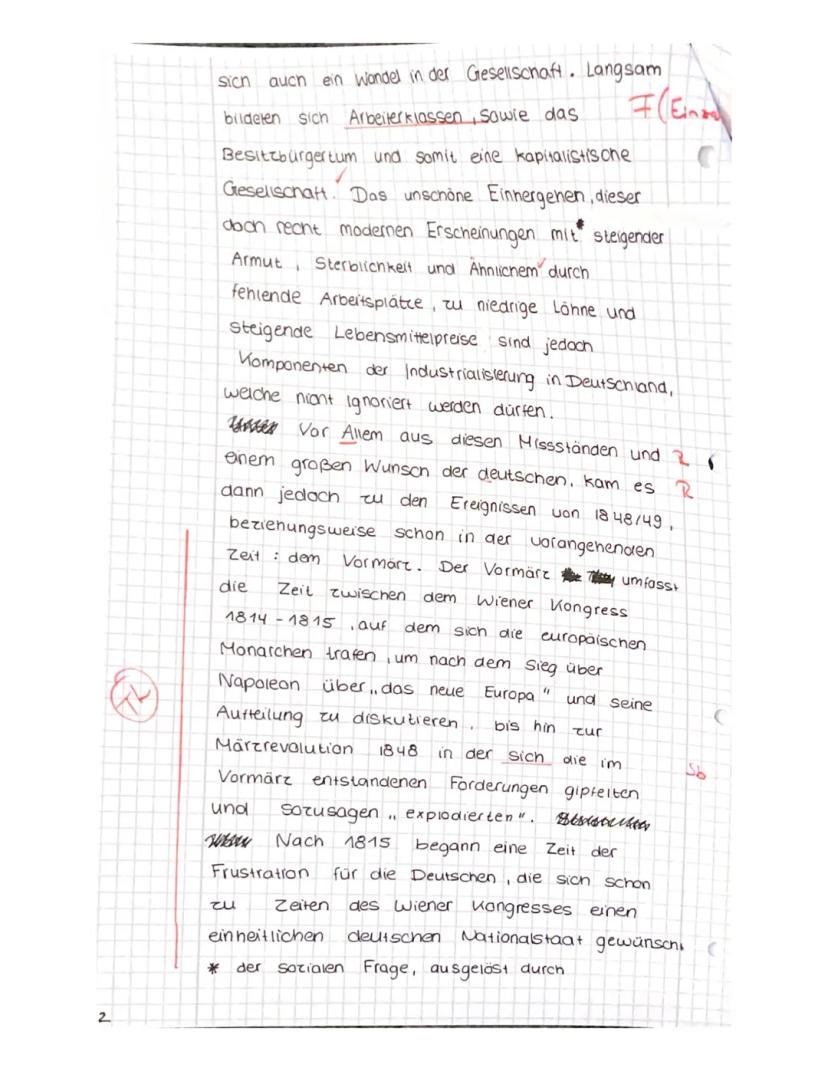 sich auch ein Wandel in der Gesellschaft. Langsam
bildeten sich Arbeiterklassen, sowie das F(Einza
Besitzbürgertum und somit eine kapitalistische
Gesellschaft. Das unschöne Einhergehen, dieser
doch recht modernen Erscheinungen mit* steigender
Armut, Sterblichkeit und Ähnlichem durch
fehlende Arbeitsplätze, zu niedrige Löhne und
steigende Lebensmittelpreise sind jedoch
Komponenten der Industrialisierung in Deutschland,
welche nicht ignoriert werden dürfen.
Vor Allem aus diesen Missständen und R
einem großen Wunsch der deutschen, kam es R
dann jedoch zu den Ereignissen von 1848/49,
beziehungsweise schon in der vorangehenden
Zeit: dem Vormärz. Der Vormärz umfasst
die Zeit zwischen dem Wiener Kongress
1814-1815, auf dem sich die europäischen
Monarchen trafen, um nach dem Sieg über
Napoleon über „das neue Europa" und seine
Aufteilung zu diskutieren, bis hin zur
Märzrevolution 1848 in der sich die im Sb
Vormärz entstandenen Forderungen gipfelten
und sozusagen „explodierten".
Nach 1815 begann eine Zeit der
Frustration für die Deutschen, die sich schon
zu Zeiten des Wiener Kongresses einen
einheitlichen deutschen Nationalstaat gewünsch
* der sozialen Frage, ausgelöst durch
2